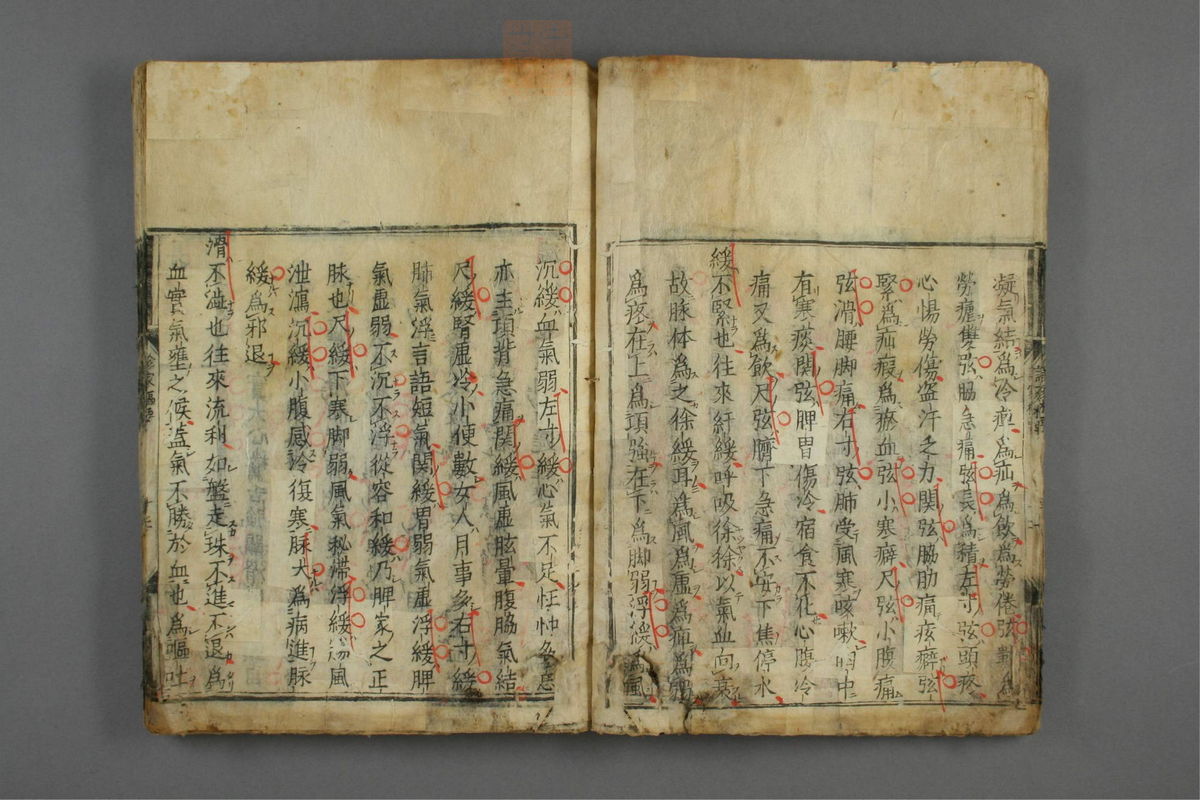 凝氣結為冷痺為疝為飲為勞倦弦數為
勞瘧雙弦脇急痛弦長為積左寸弦頭疼
心惕勞傷盗汗之力関弦脇肋痛痃癖弦
緊為疝瘕為瘀血弦小寒癖尺弦小腹痛
弦滑腰脚痛右寸弦肺受風寒咳嗽胸中
有寒痰関弦脾胃傷冷宿食不化心腹冷
痛又為飲尺弦臍下急痛不安下焦停水
緩不緊也往來紆緩呼吸徐徐以氣血向衰
故脉体為之徐緩耳為風為虚為痺為弱
為疼在上為項強在下為脚弱浮緩為風
沉緩血氣弱左寸緩心氣不足怔忡多忘
亦主項背急痛関緩風虚眩暈腹脇氣結
尺緩腎虚冷小便數女人月事多右寸緩
肺氣浮言語短氣関緩胃弱氣虚浮緩脾
氣虚弱不沉不浮從容和緩乃脾家之正
脉也尺緩下寒脚弱風氣秘滞浮緩腸風
泄瀉沉緩小腹感冷復寒脉大為病進脉
緩為邪退
滑不澁也往來流利如盤走珠不進不退為
血實氣壅之候盖氣不勝於血也為嘔吐